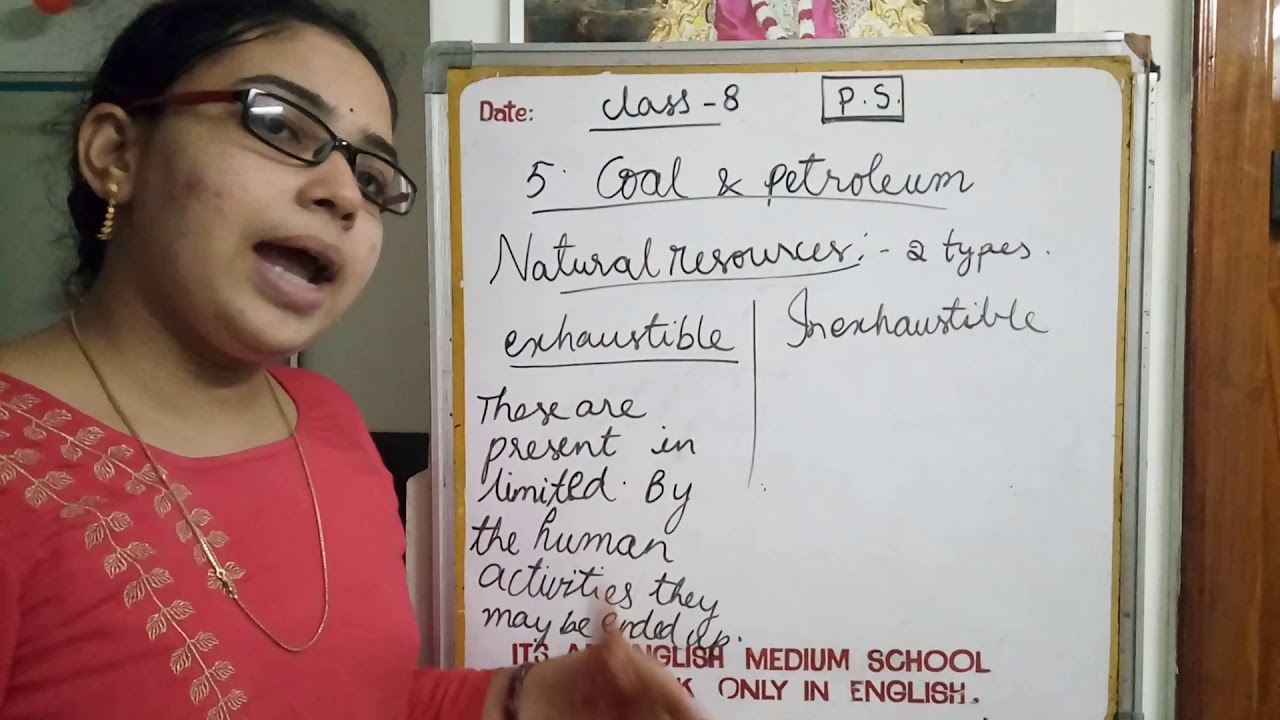 Date: Class - 8 P.S.
5. Coal & petroleum
Natural resources :- 2 types.
exhaustible Inexhaustible
These are
present in
limited. By
the human
activities they
may be ended up.
IT'S ENGLISH MEDIUM SCHOOL
ONLY IN ENGLISH.